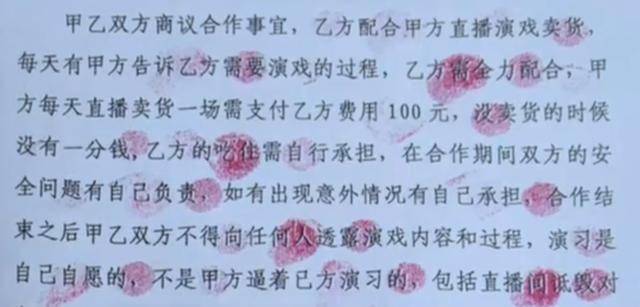 甲乙双方商议合作事宜，乙方配合甲方直播演戏卖货，
每天有甲方告诉乙方需要演戏的过程，乙方需全力配合，甲
方每天直播卖货一场需支付乙方费用100元，没卖货的时候
没有一分钱,乙方的吃住需自行承担，在合作期间双方的安
全问题有自己负责，如有出现意外情况有自己承担，合作结
束之后甲乙双方不得向任何人透露演戏内容和过程，演习是
自己自愿的，不是甲方逼着已方演习的，包括直播间诋毁对